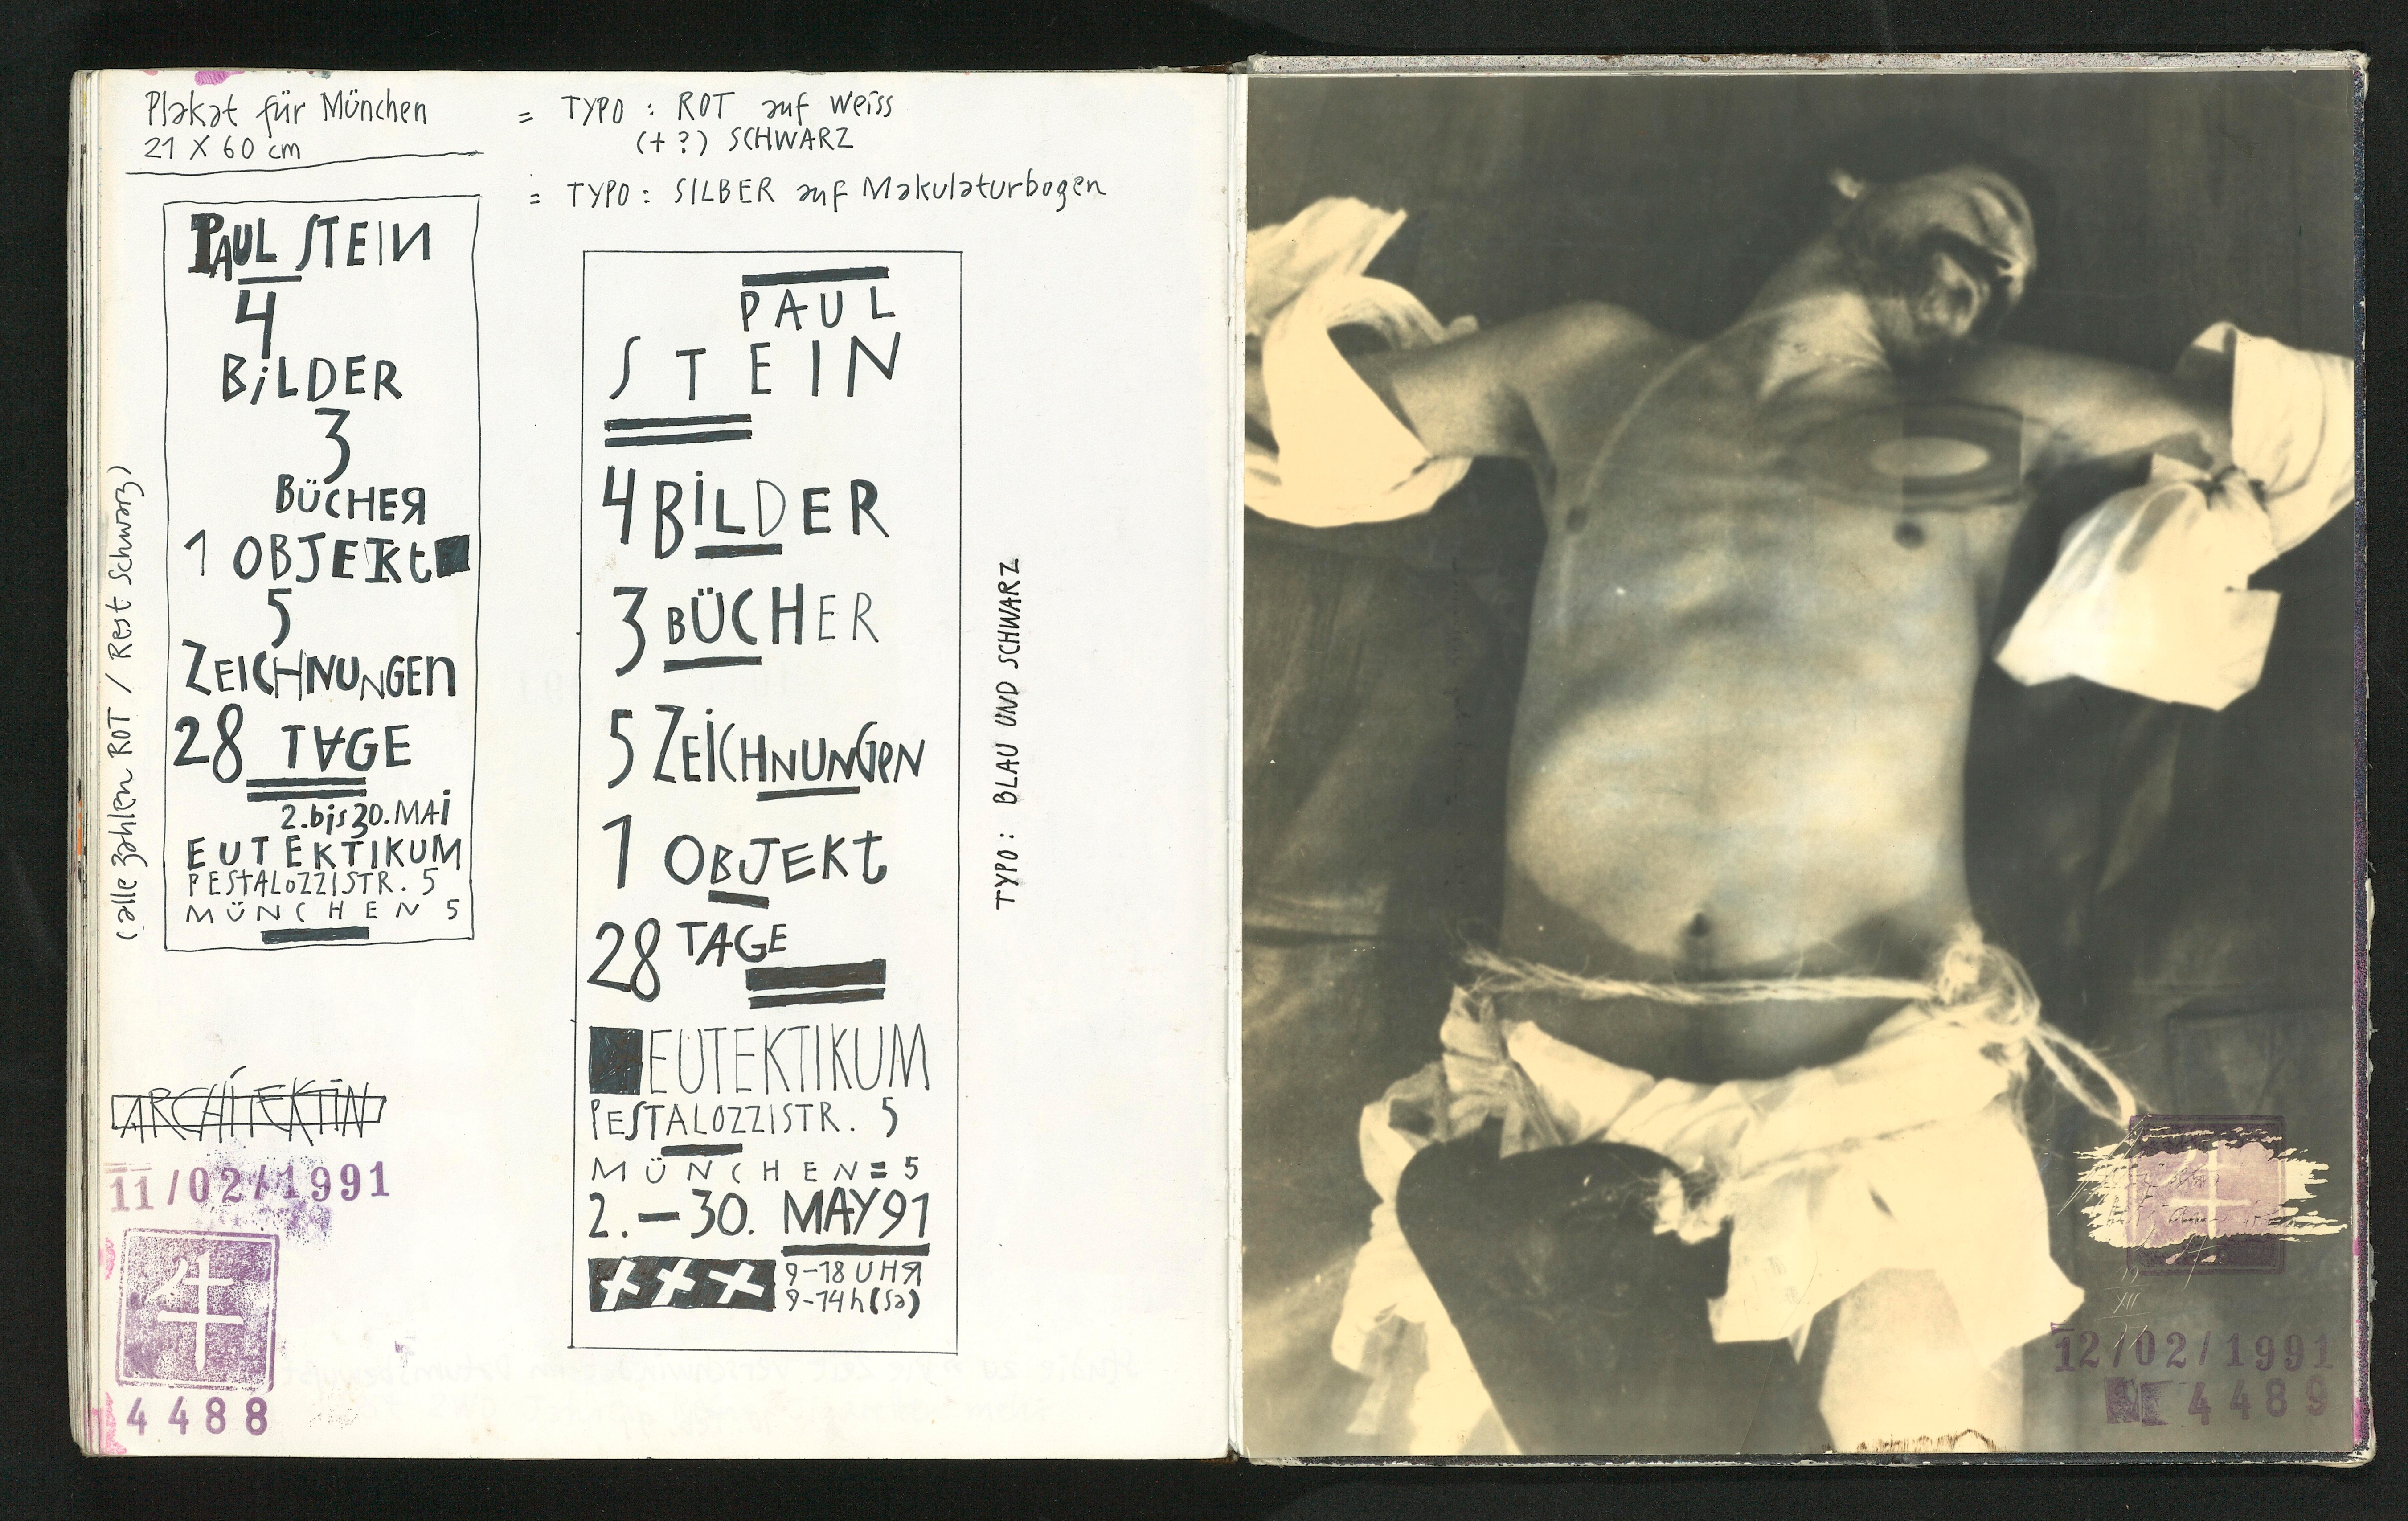 Plakat für München
21 X 60 cm
= TYPO : ROT auf weiss
(+?) SCHWARZ
= TYPO : SILBER auf Makulaturbogen
(alle zahlen ROT / Rest Schwarz)
PAUL STEIN
4
BiLDER
3
BÜCHER
1 OBJEKt
5
ZEICHNUNGEN
28 TAGE
2.bis 30. MAi
EUTEKTIKUM
PESTALOZZISTR. 5
MÜNCHEN 5
PAUL
STEIN
4 BiLDER
3 BÜCHER
5 ZEiCHNUNGEN
1 OBJEKt
28 TAGE
EUTEKTIKUM
PESTALOZZISTR. 5
MÜNCHEN = 5
2. – 30. MAY 91
+++ 9–18 UHR
9–14h (Sa)
TYPO : BLAU UND SCHWARZ
ARCHiTEKTiN
11/02/1991
牛
4488
牛
XII
12/02/1991
4489